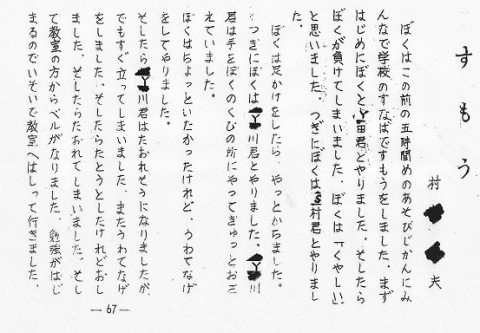 すもう
村 夫
ぼくはこの前の五時間めのあそびじかんにみ
んなで学校のすなばですもうをしました。まず
はじめにぼくとY田君とやりました。そしたら
ぼくが負けてしまいました。ぼくは「くやしい」
と思いました。つぎにぼくは村君とやりまし
た。
ぼくは足かけをしたら、やっとかちました。
つぎにぼくはY川君とやりました。Y川
君は手をぼくのくびの所にやってぎゅっとおさ
えていました。
ぼくはちょっといたかったけれど、うわてなげ
をしてやりました。
そしたらY川君はたおれそうになりましたが、
でもすぐ立ってしまいました。またうわてなげ
をしました。そしたらたとうとしたけれどおし
ました。そしたらたおれてしまいました。そし
て教室の方からベルがなりました。勉強がはじ
まるのでいそいで教室へはしって行きました。
— 67 —